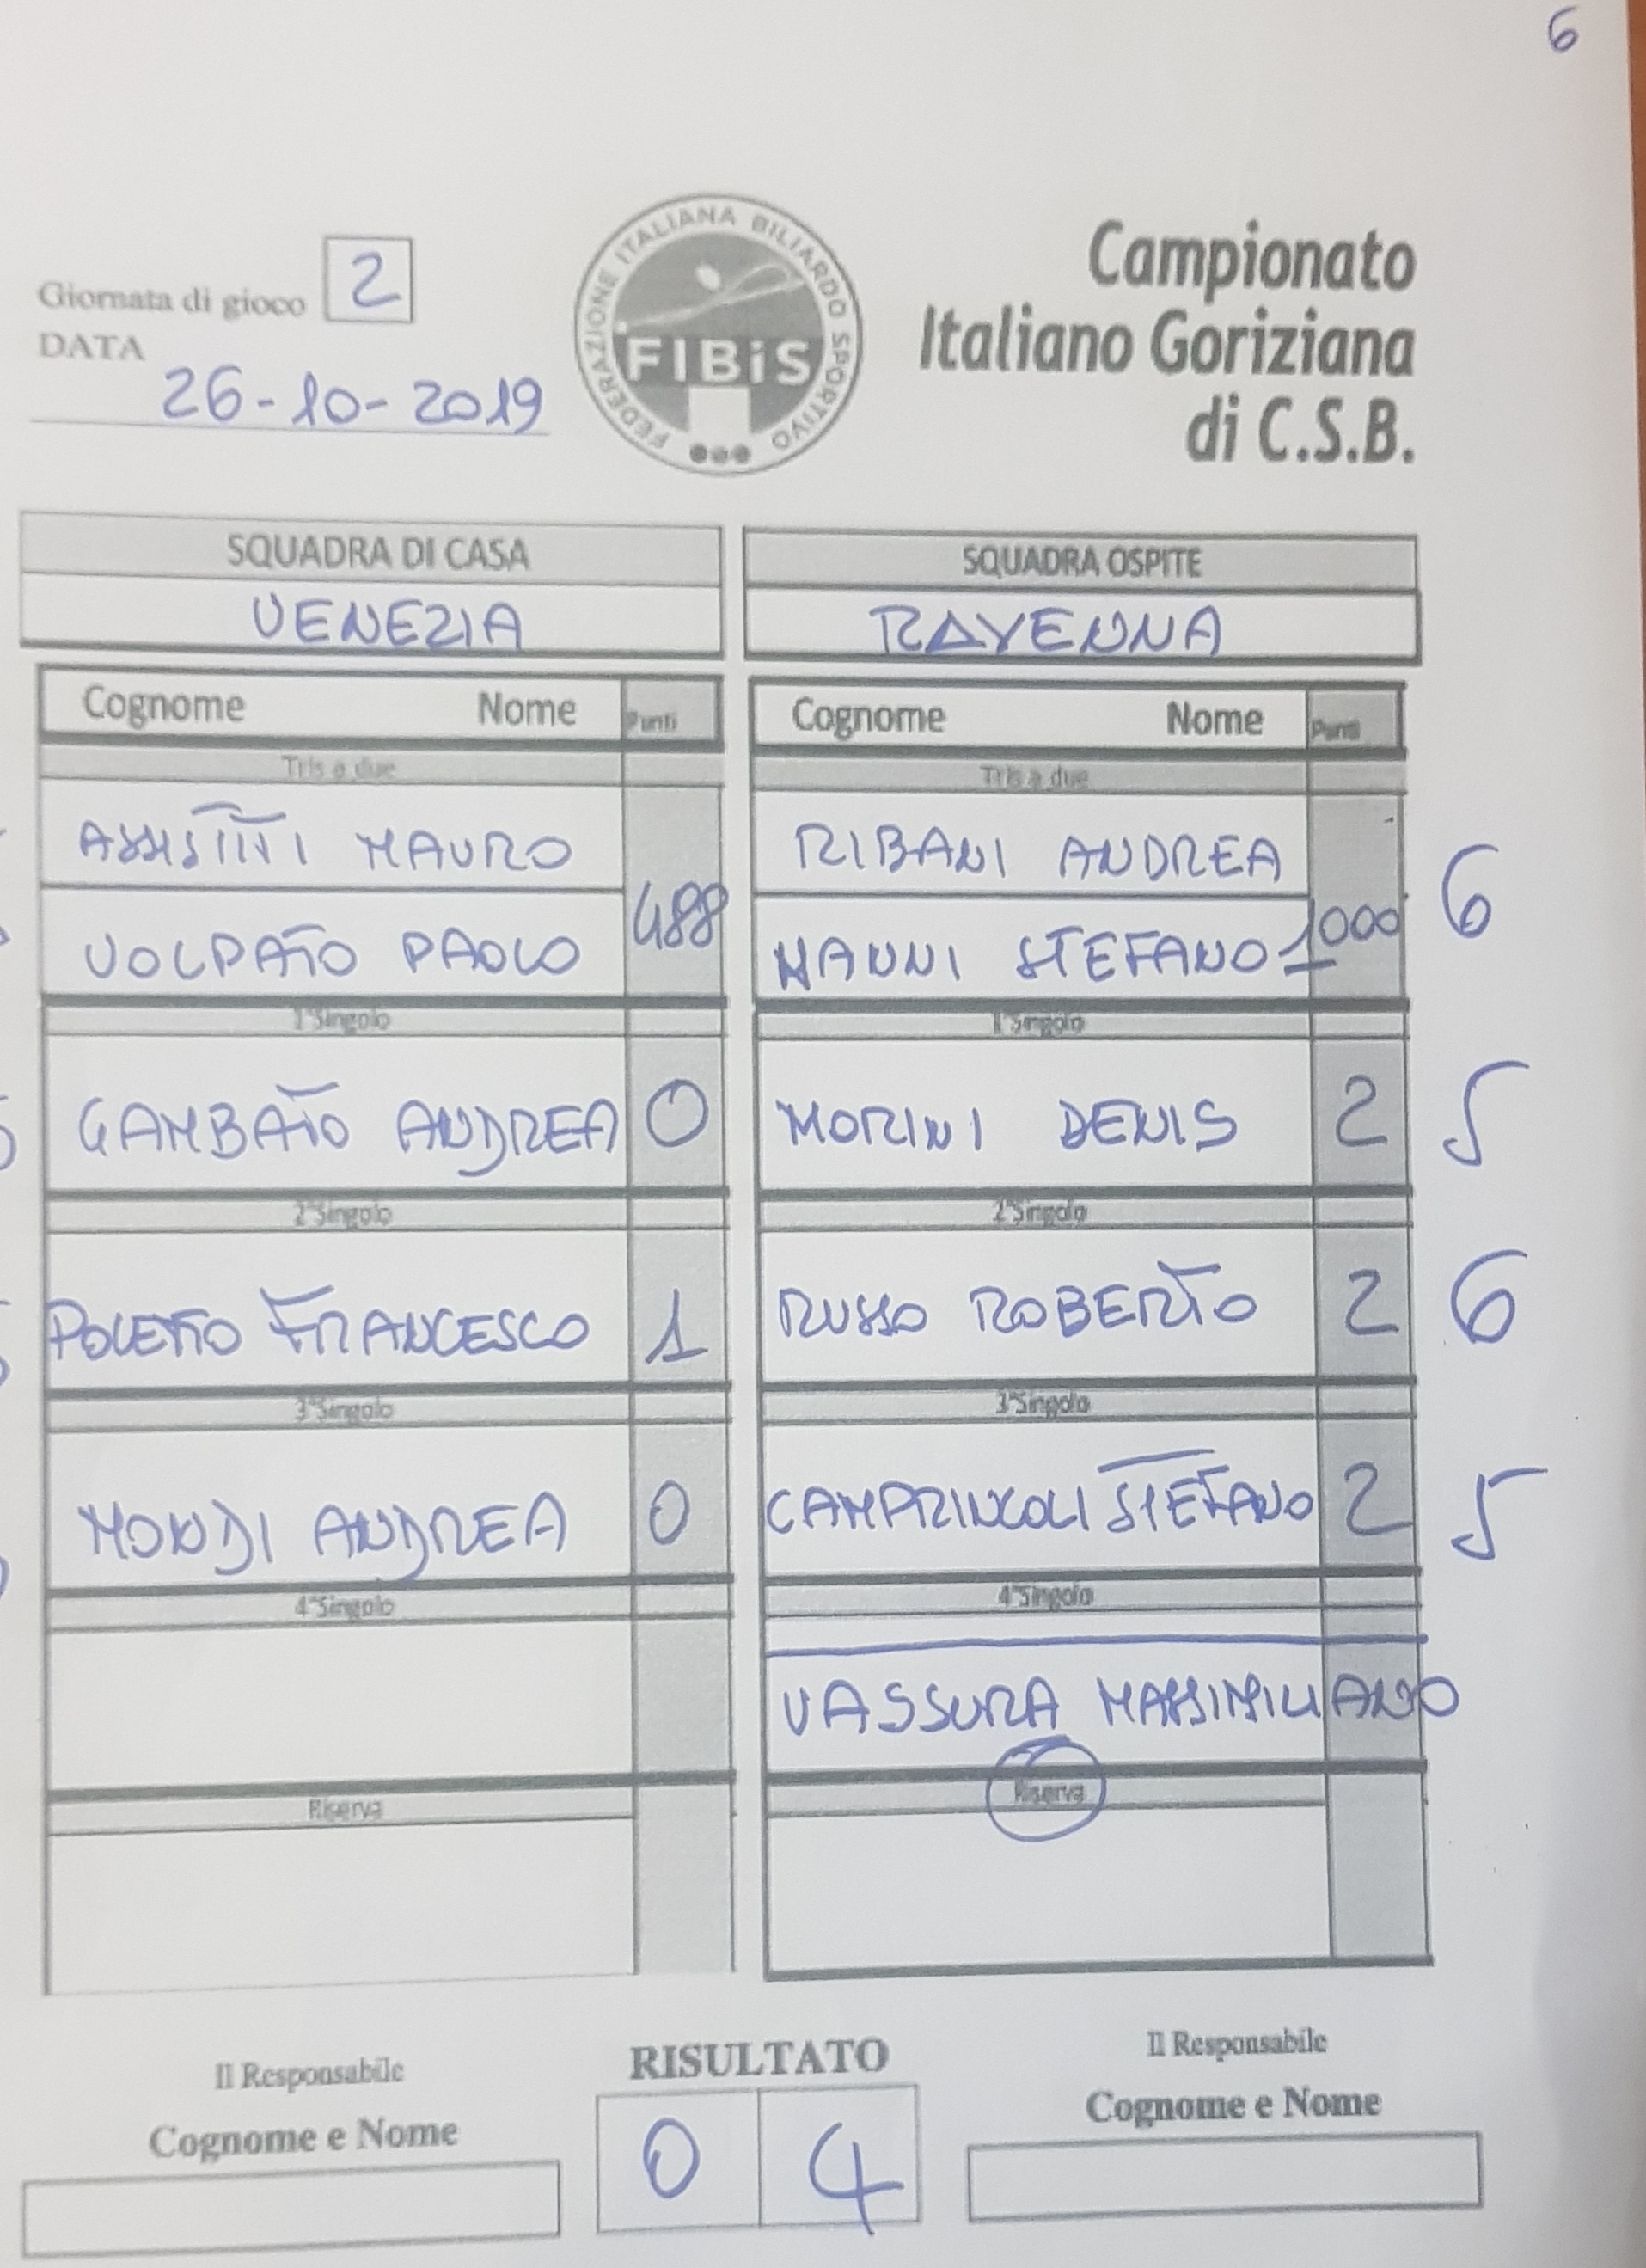 6
Giornata di gioco 2
DATA
26-10-2019
FEDERAZIONE ITALIANA BILIARDO SPORTIVO
FIBiS
Campionato
Italiano Goriziana
di C.S.B.
SQUADRA DI CASA
VENEZIA
SQUADRA OSPITE
RAVENNA
Cognome Nome Punti
Cognome Nome Punti
Tris a due
Tris a due
MAURO
RIBANI ANDREA
488
1000
6
VOLPATO PAOLO
NANNI STEFANO
1°Singolo
1°Singolo
GAMBATO ANDREA 0
MORINI DENIS 2 5
2°Singolo
2°Singolo
POLETTO FRANCESCO 1
RUSSO ROBERTO 2 6
3°Singolo
3°Singolo
MONDI ANDREA 0
CAMPRINCOLI STEFANO 2 5
4°Singolo
4°Singolo
VASSURA MASSIMILIANO
Riserva
Riserva
RISULTATO
0 4
Il Responsabile
Cognome e Nome
Il Responsabile
Cognome e Nome